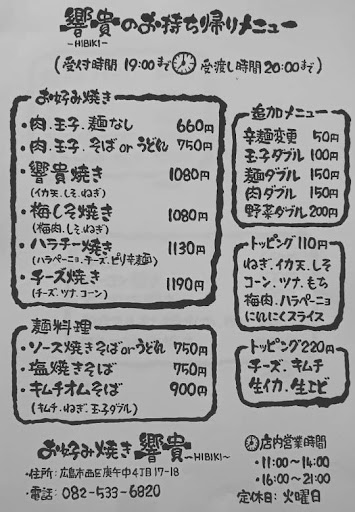 響貴のお持ち帰りメニュー
~HIBIKI~
(受付時間 19:00まで 受渡し時間 20:00まで)
お好み焼き
・肉、玉子、麺なし 660円
・肉、玉子、そばorうどん 750円
・響貴焼き 1080円
(イカ天、しそ、ねぎ)
・梅しそ焼き 1080円
(梅肉、しそ、ねぎ)
・ハラチー焼き 1130円
(ハラペーニョ、チーズ、ピリ辛麺)
・チーズ焼き 1190円
(チーズ、ツナ、コーン)
麺料理
・ソース焼きそばorうどん 750円
・塩焼きそば 750円
・キムチオムそば 900円
(キムチ、ねぎ、玉子ダブル)
追加メニュー
辛麺変更 50円
玉子ダブル 100円
麺ダブル 150円
肉ダブル 150円
野菜ダブル 200円
トッピング110円
ねぎ、イカ天、しそ
コーン、ツナ、もち
梅肉、ハラペーニョ
にんにくスライス
トッピング220円
チーズ、キムチ
生イカ、生エビ
お好み焼き 響貴 ~HIBIKI~
・住所: 広島市西区庚午中4丁目17-18
・電話: 082-533-6820
店内営業時間
・11:00~14:00
・16:00~21:00
定休日: 火曜日